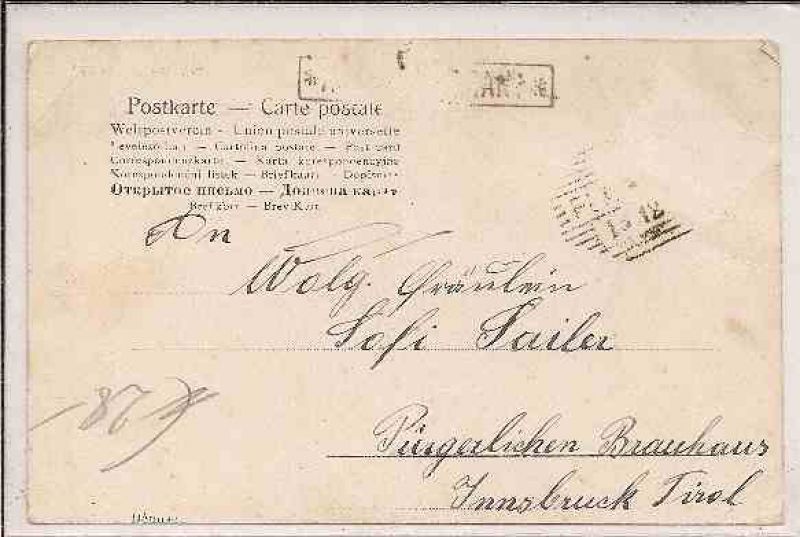 Postkarte — Carte postale
Weltpostverein - Union postale universelle
Cartolina postale — Post card
Correspondenzkarte — Karta korespondencyjna
Korespondenční lístek — Briefkaart — Dopisnice
Открытое письмо —
Brefkort — Brev-Kort
An
Wolg. Fräulein
Sofi Sailer
Pürgerlichen Brauhaus
Innsbruck Tirol
12
87